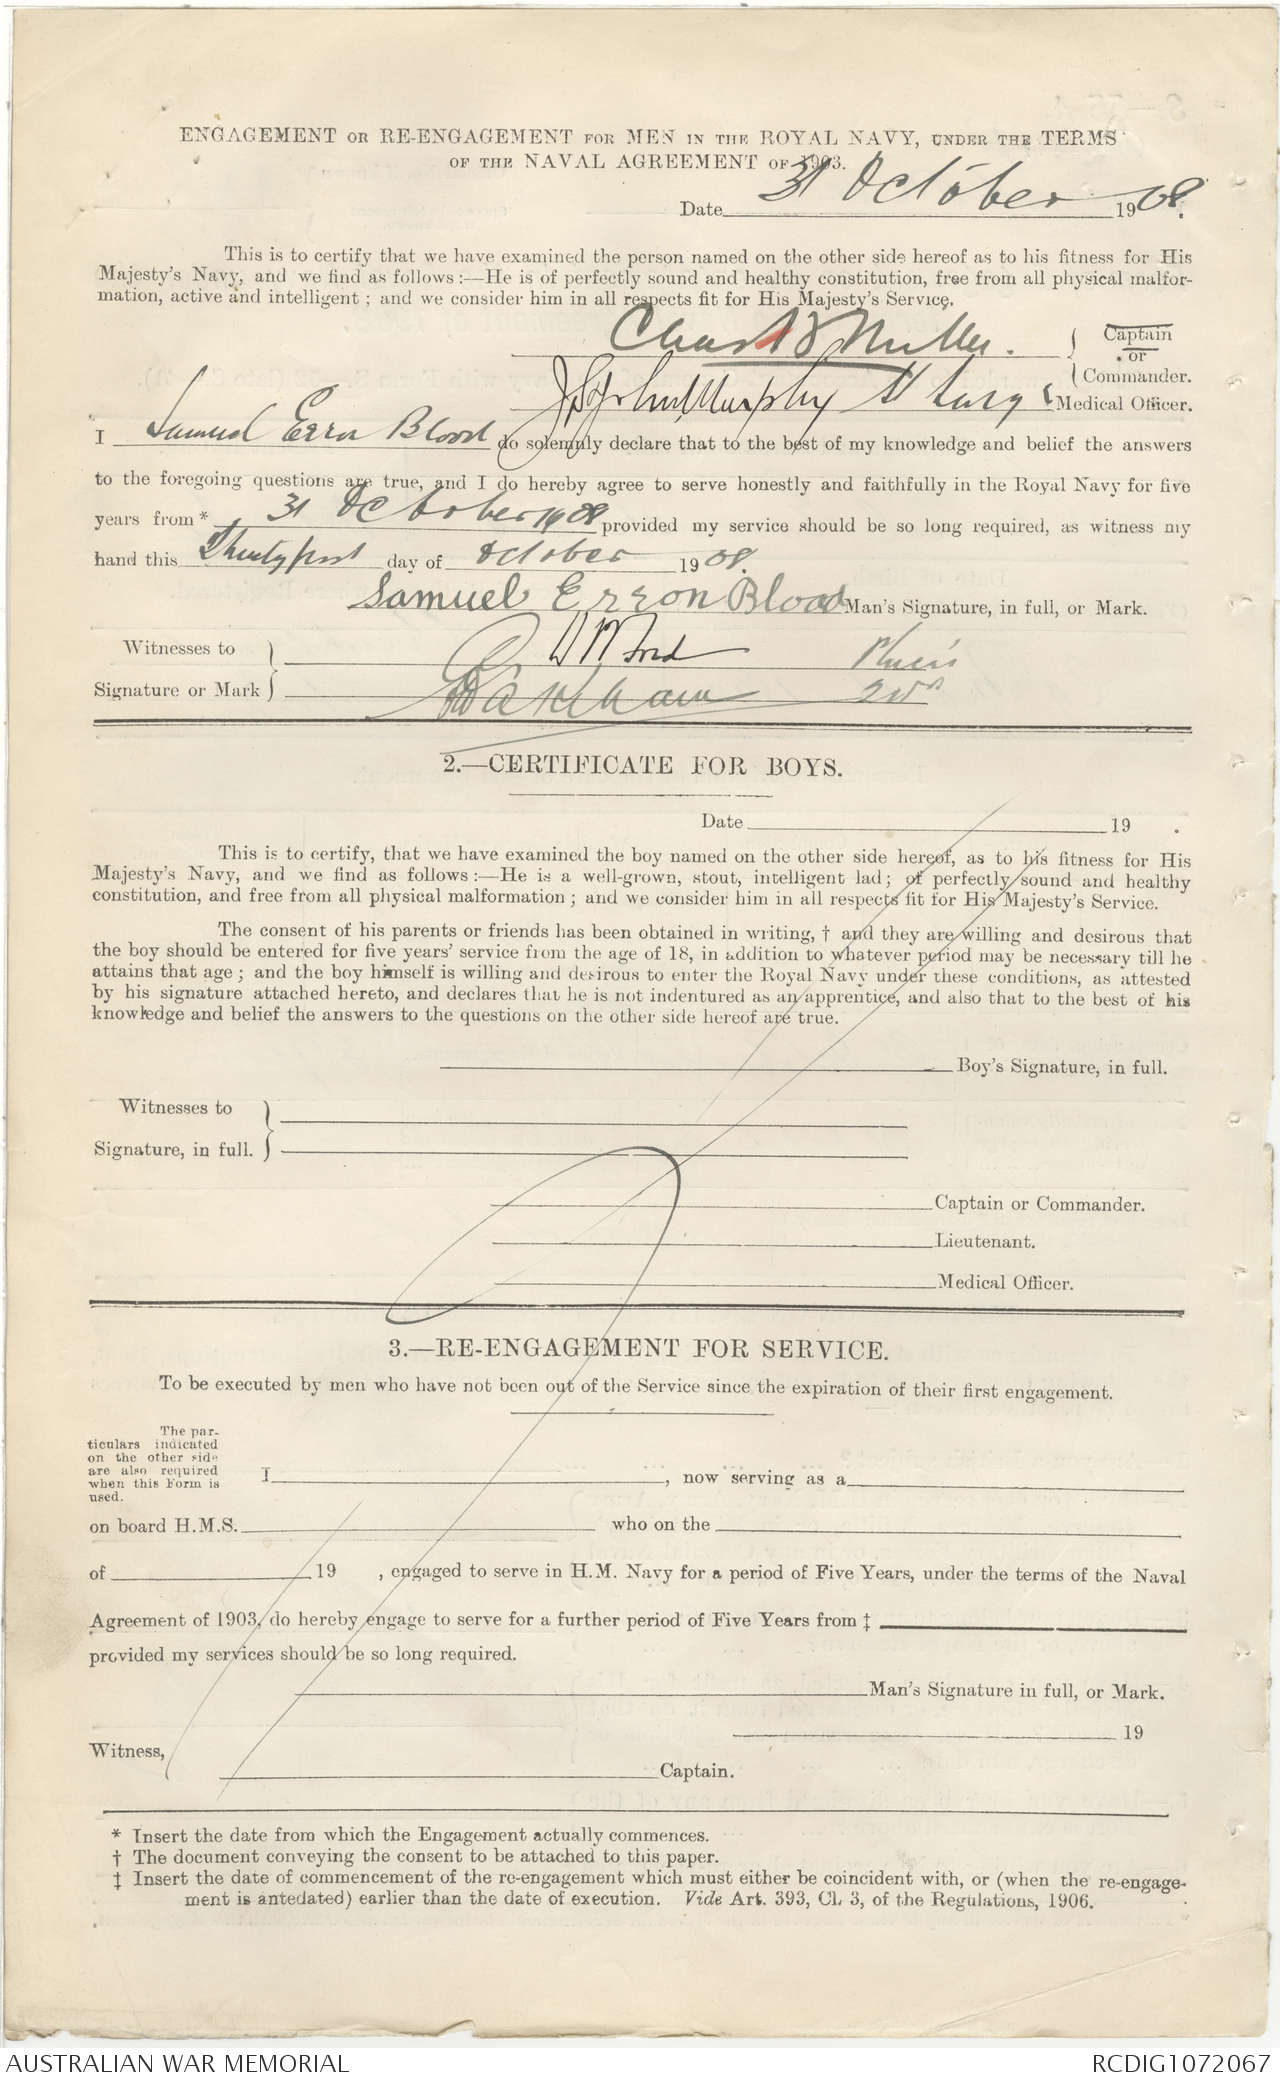 ENGAGEMENT OR RE-ENGAGEMENT FOR MEN IN THE ROYAL NAVY, UNDER THE TERMS
OF THE NAVAL AGREEMENT OF 1903.
Date 31 October 1908.
This is to certify that we have examined the person named on the other side hereof as to his fitness for His
Majesty's Navy, and we find as follows:—He is of perfectly sound and healthy constitution, free from all physical malfor-
mation, active and intelligent; and we consider him in all respects fit for His Majesty's Service.
Captain
or
Commander.
Murphy Medical Officer.
I Samuel Erron Blood do solemnly declare that to the best of my knowledge and belief the answers
to the foregoing questions are true, and I do hereby agree to serve honestly and faithfully in the Royal Navy for five
years from* 31 October 1908 provided my service should be so long required, as witness my
hand this Thirtyfirst day of October 1908.
Samuel Erron Blood Man's Signature, in full, or Mark.
Witnesses to
Signature or Mark
2.—CERTIFICATE FOR BOYS.
Date 19 .
This is to certify, that we have examined the boy named on the other side hereof, as to his fitness for His
Majesty's Navy, and we find as follows:—He is a well-grown, stout, intelligent lad; of perfectly sound and healthy
constitution, and free from all physical malformation; and we consider him in all respects fit for His Majesty's Service.
The consent of his parents or friends has been obtained in writing, † and they are willing and desirous that
the boy should be entered for five years' service from the age of 18, in addition to whatever period may be necessary till he
attains that age; and the boy himself is willing and desirous to enter the Royal Navy under these conditions, as attested
by his signature attached hereto, and declares that he is not indentured as an apprentice, and also that to the best of his
knowledge and belief the answers to the questions on the other side hereof are true.
Boy's Signature, in full.
Witnesses to
Signature, in full.
Captain or Commander.
Lieutenant.
Medical Officer.
3.—RE-ENGAGEMENT FOR SERVICE.
To be executed by men who have not been out of the Service since the expiration of their first engagement.
The par-
ticulars indicated
on the other side
are also required
when this Form is
used.
I , now serving as a
on board H.M.S. who on the
of 19 , engaged to serve in H.M. Navy for a period of Five Years, under the terms of the Naval
Agreement of 1903, do hereby engage to serve for a further period of Five Years from ‡
provided my services should be so long required.
Man's Signature in full, or Mark.
19
Witness,
Captain.
* Insert the date from which the Engagement actually commences.
† The document conveying the consent to be attached to this paper.
‡ Insert the date of commencement of the re-engagement which must either be coincident with, or (when the re-engage-
ment is antedated) earlier than the date of execution. Vide Art. 393, Cl. 3, of the Regulations, 1906.
AUSTRALIAN WAR MEMORIAL RCDIG1072067